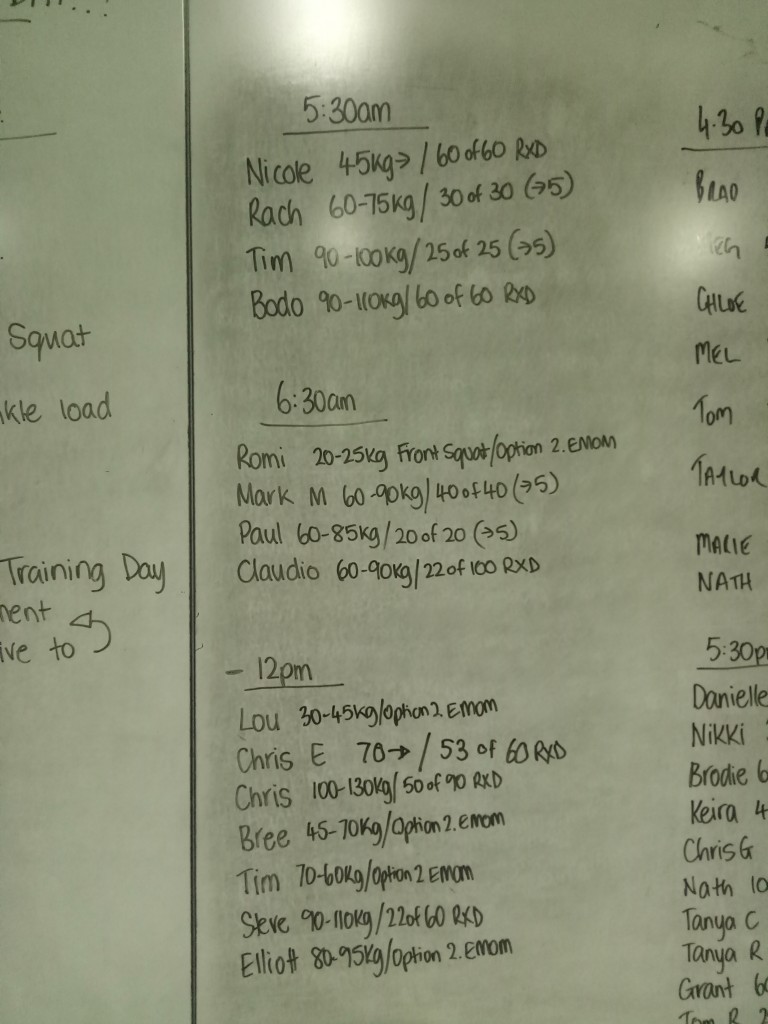 Squat
load
Training Day
to
5:30am
Nicole 45kg→ / 60 of 60 RXD
Rach 60-75kg / 30 of 30 (→5)
Tim 90-100kg / 25 of 25 (→5)
Bodo 90-110kg / 60 of 60 RXD
6:30am
Romi 20-25kg Front Squat/Option 2. EMOM
Mark M 60-90kg / 40 of 40 (→5)
Paul 60-85kg / 20 of 20 (→5)
Claudio 60-90kg / 22 of 100 RXD
- 12pm
Lou 30-45kg/Option 2. EMOM
Chris E 70→ / 53 of 60 RXD
Chris 100-130kg / 50 of 90 RXD
Bree 45-70kg/Option 2. EMOM
Tim 70-60kg/Option 2 EMOM
Steve 90-110kg / 22 of 60 RXD
Elliott 80-95kg/Option 2. EMOM
4.30
BRAD
CHLOE
MEL
TOM
TAYLOR
MARIE
NATH
5:30p
Danielle
Nikki
Brodie 6
Keira 4
Chris G
Nath 10
Tanya C
Tanya R
Grant 6
Tom R 2